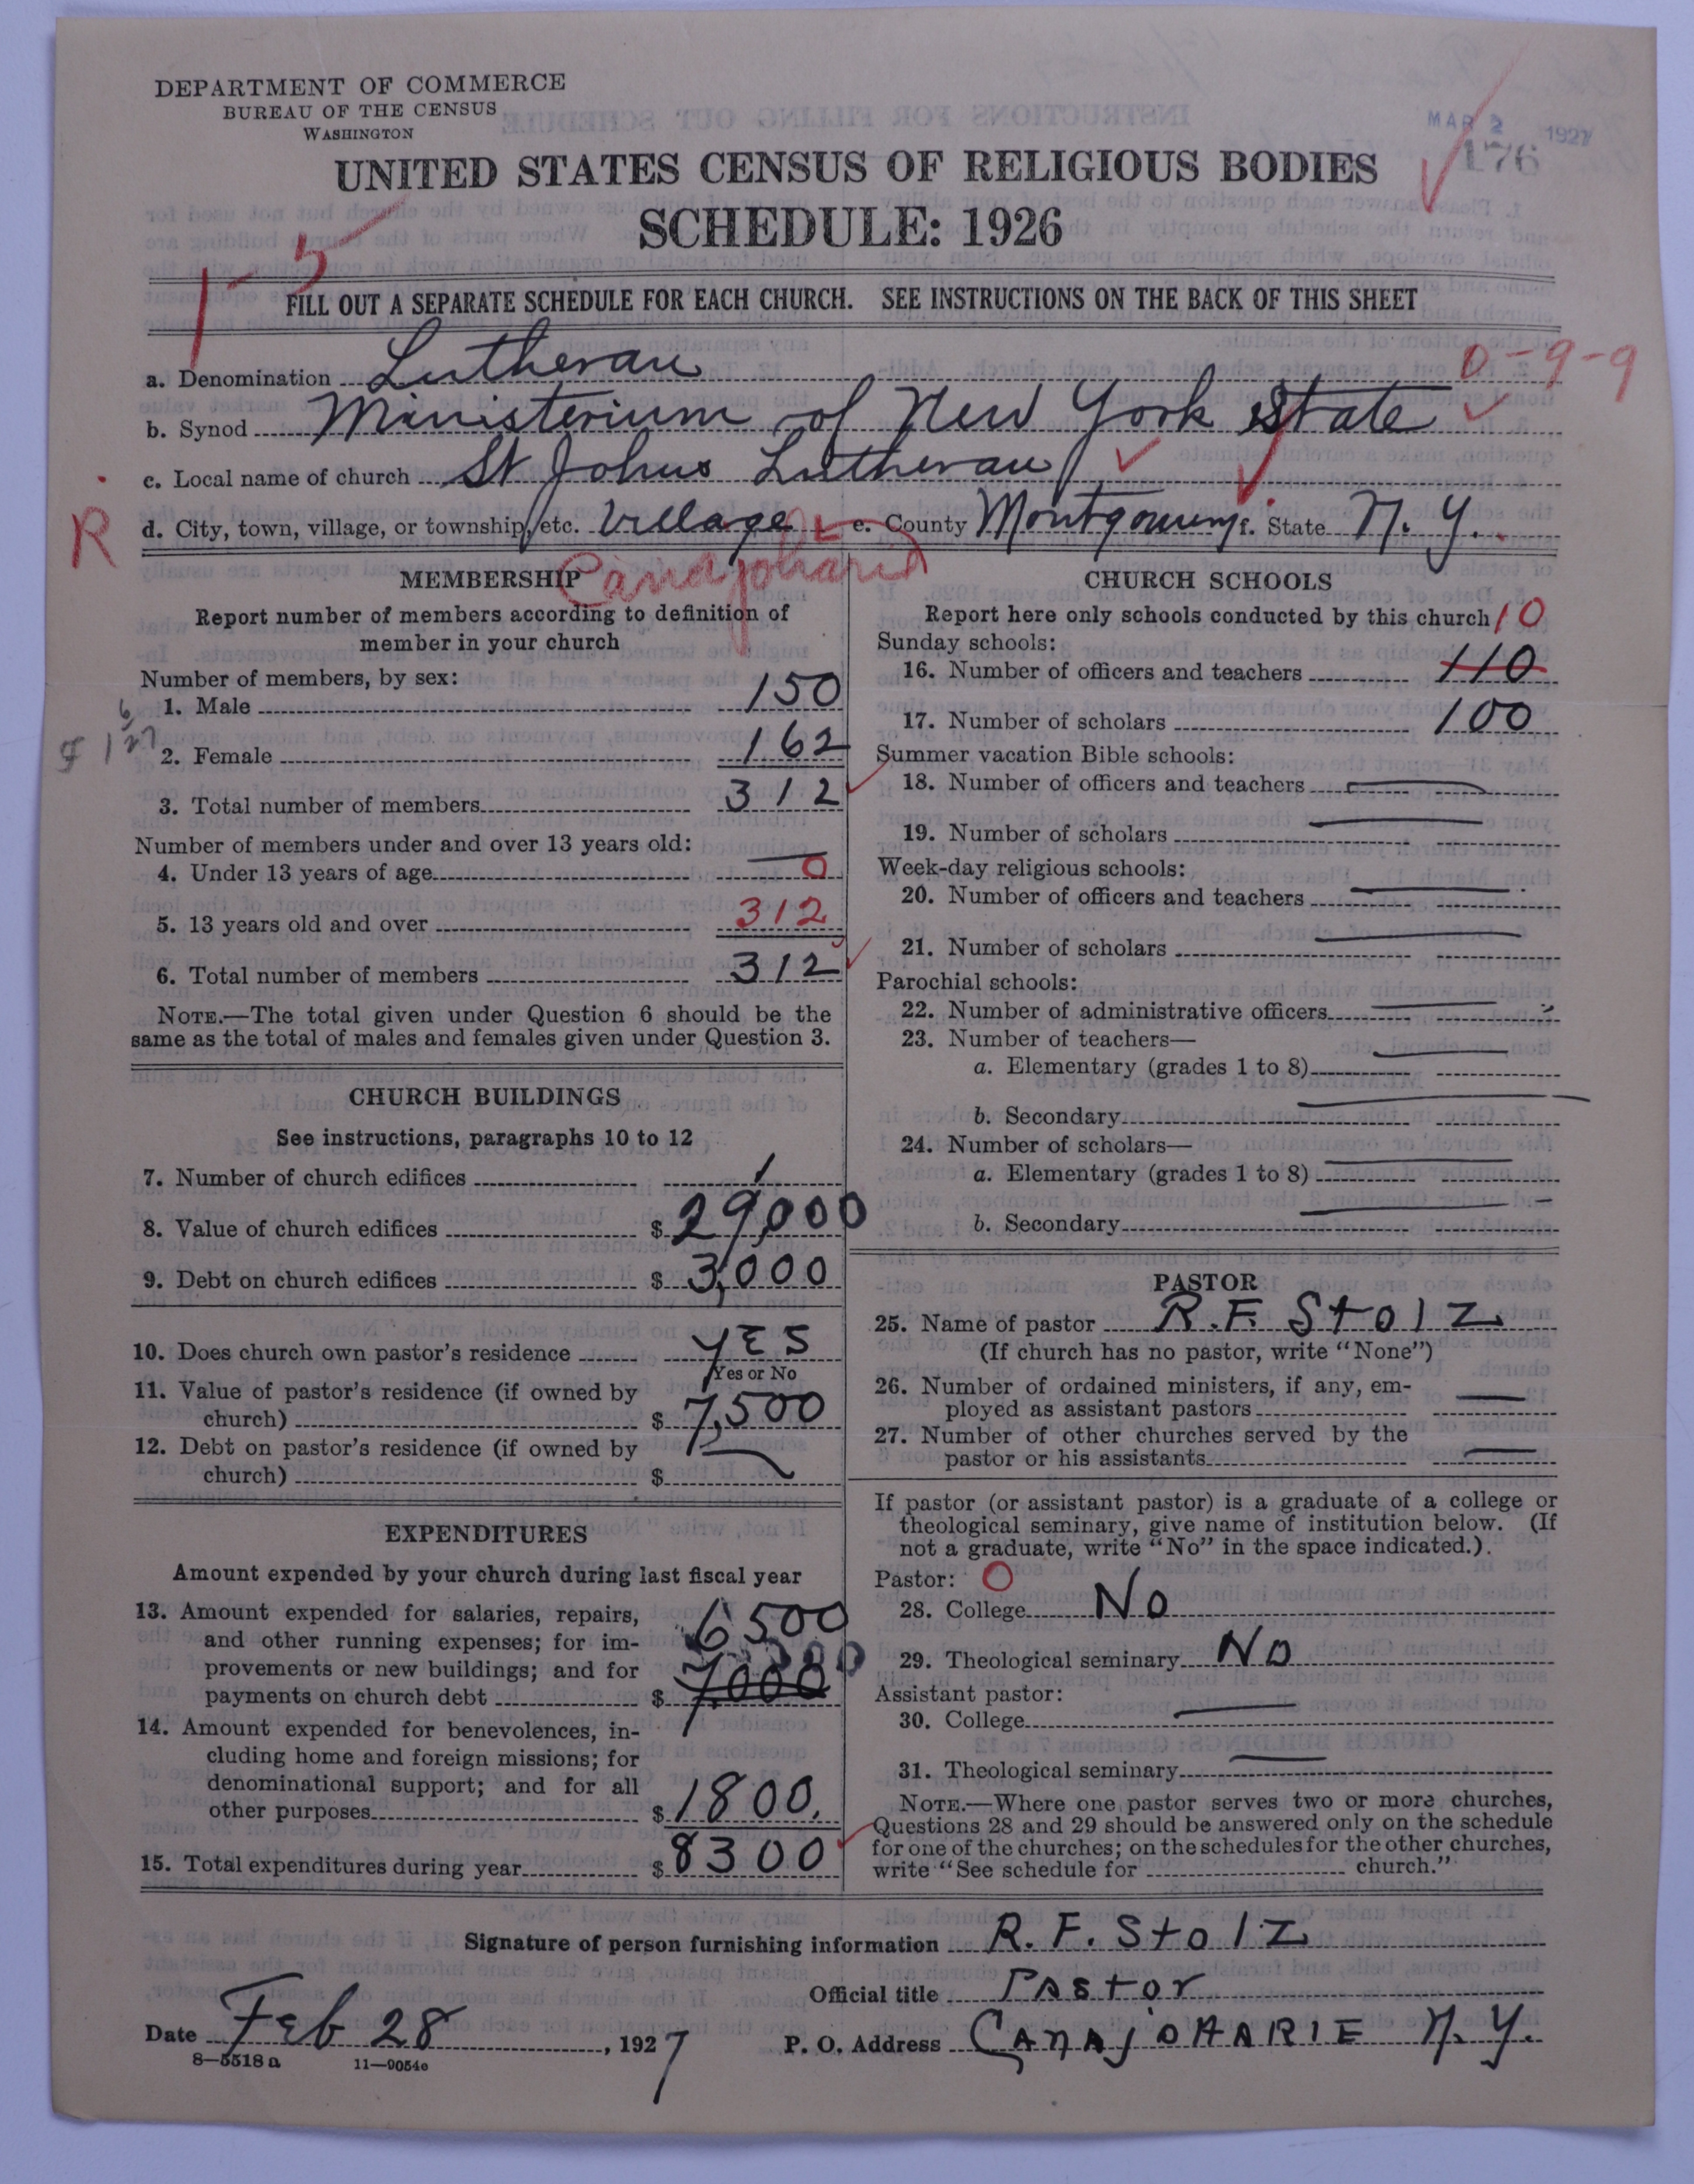 DEPARTMENT OF COMMERCE
BUREAU OF THE CENSUS
WASHINGTON
MAR 2 1927
176
UNITED STATES CENSUS OF RELIGIOUS BODIES
SCHEDULE: 1926
1-5
FILL OUT A SEPARATE SCHEDULE FOR EACH CHURCH. SEE INSTRUCTIONS ON THE BACK OF THIS SHEET
a. Denomination Lutheran
0-9-9
b. Synod Ministerium of New York State
c. Local name of church St Johns Lutheran
R
d. City, town, village, or township, etc. Village e. County Montgomery f. State N. Y.
Canajoharie
MEMBERSHIP
Report number of members according to definition of
member in your church
Number of members, by sex:
1. Male 150
2. Female 162
3. Total number of members 312
Number of members under and over 13 years old:
4. Under 13 years of age 0
5. 13 years old and over 312
6. Total number of members 312
NOTE.—The total given under Question 6 should be the
same as the total of males and females given under Question 3.
CHURCH BUILDINGS
See instructions, paragraphs 10 to 12
7. Number of church edifices 1
8. Value of church edifices $ 29,000
9. Debt on church edifices $ 3,000
10. Does church own pastor's residence YES
Yes or No
11. Value of pastor's residence (if owned by
church) $ 7,500
12. Debt on pastor's residence (if owned by
church) $ —
EXPENDITURES
Amount expended by your church during last fiscal year
13. Amount expended for salaries, repairs,
and other running expenses; for im-
provements or new buildings; and for
payments on church debt $ 6500
7000
14. Amount expended for benevolences, in-
cluding home and foreign missions; for
denominational support; and for all
other purposes $ 1800.
15. Total expenditures during year $ 8300
CHURCH SCHOOLS
Report here only schools conducted by this church
10
Sunday schools:
16. Number of officers and teachers 110
17. Number of scholars 100
Summer vacation Bible schools:
18. Number of officers and teachers —
19. Number of scholars —
Week-day religious schools:
20. Number of officers and teachers —
21. Number of scholars —
Parochial schools:
22. Number of administrative officers —
23. Number of teachers—
a. Elementary (grades 1 to 8) —
b. Secondary —
24. Number of scholars—
a. Elementary (grades 1 to 8) —
b. Secondary —
PASTOR
25. Name of pastor R. F. Stolz
(If church has no pastor, write "None")
26. Number of ordained ministers, if any, em-
ployed as assistant pastors —
27. Number of other churches served by the
pastor or his assistants —
If pastor (or assistant pastor) is a graduate of a college or
theological seminary, give name of institution below. (If
not a graduate, write "No" in the space indicated.).
Pastor: 0
28. College No
29. Theological seminary No
Assistant pastor:
30. College —
31. Theological seminary —
NOTE.—Where one pastor serves two or more churches,
Questions 28 and 29 should be answered only on the schedule
for one of the churches; on the schedules for the other churches,
write "See schedule for church."
Signature of person furnishing information R. F. Stolz
Official title Pastor
Date Feb 28, 1927 P. O. Address CANAJOHARIE N. Y.
8—5518a 11—9054c